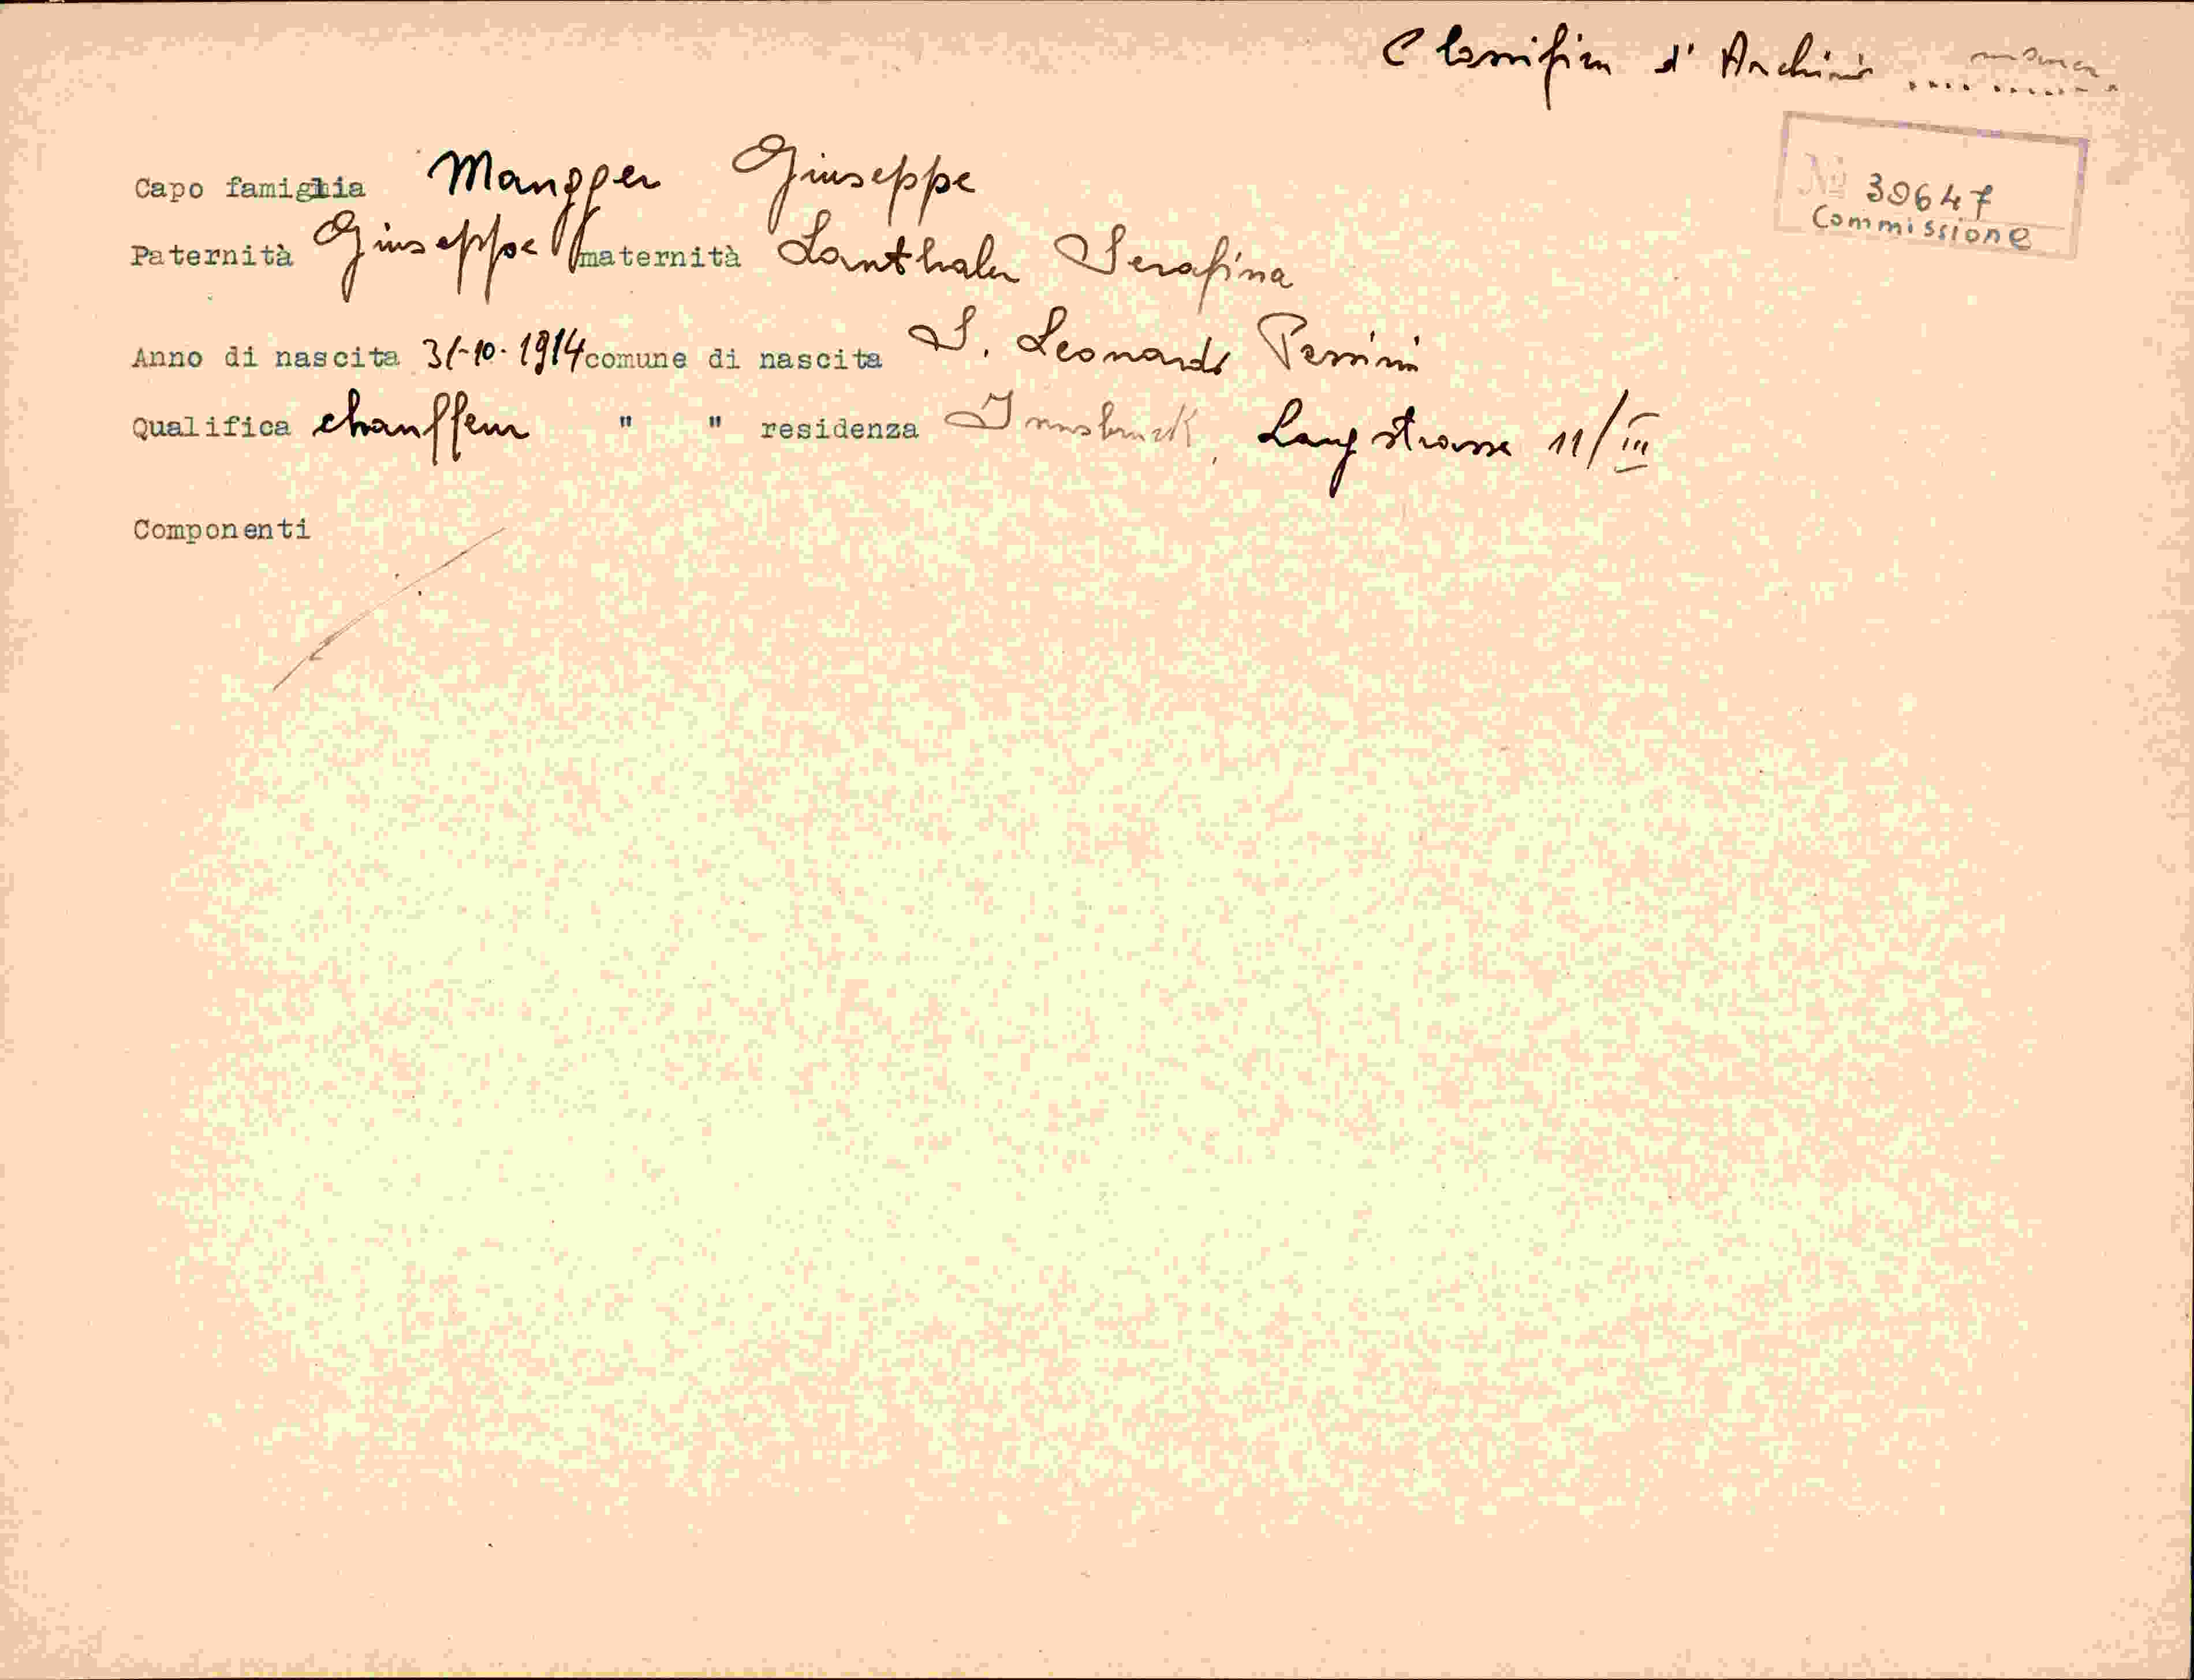 Classifica d'Archivio ..........
Nº 39647
Commissione
Capo famiglia Mangger Giuseppe
Paternità Giuseppe maternità Lanthaler Serafina
Anno di nascita 31-10-1914 comune di nascita S. Leonardo Passiria
Qualifica chauffeur " " residenza Innsbruck, Langstrasse 11/III
Componenti